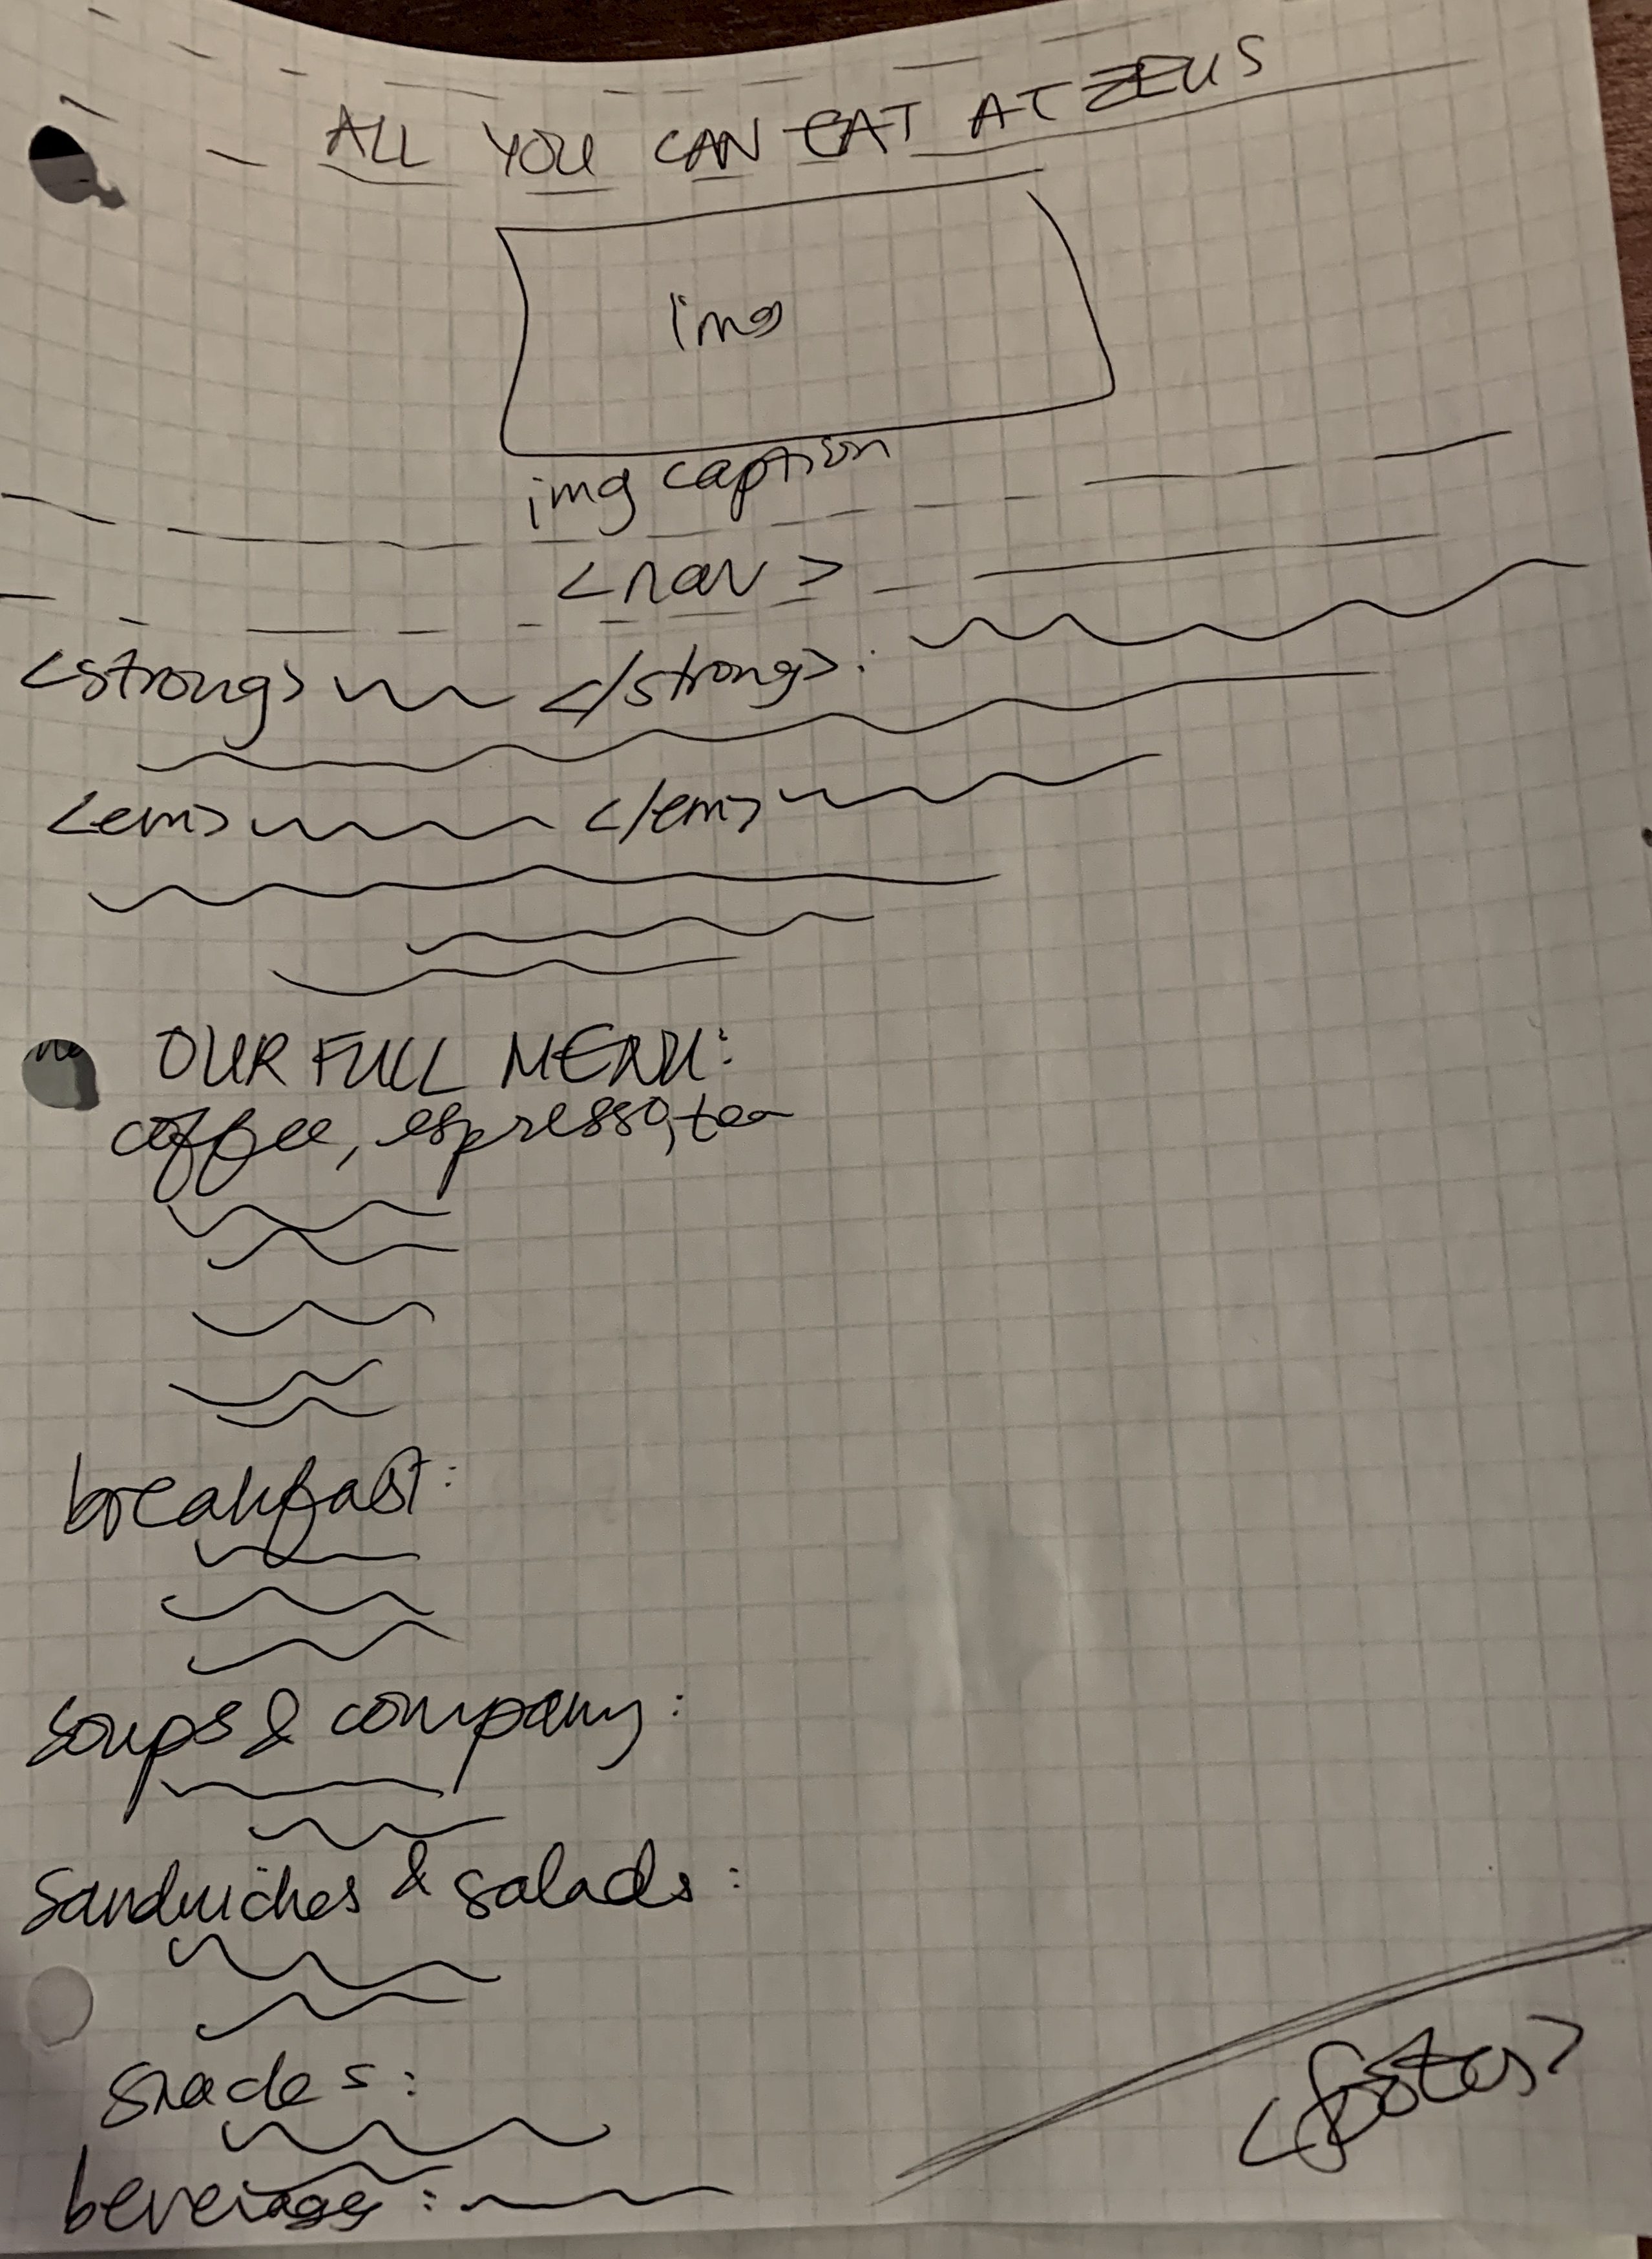 ALL YOU CAN EAT AT ZEUS
img
img caption
<nav>
<strong> </strong>:
<em> </em>
OUR FULL MENU:
coffee, espresso, tea
breakfast:
soups & company:
Sandwiches & salads:
snacks:
beverages:
<footer>